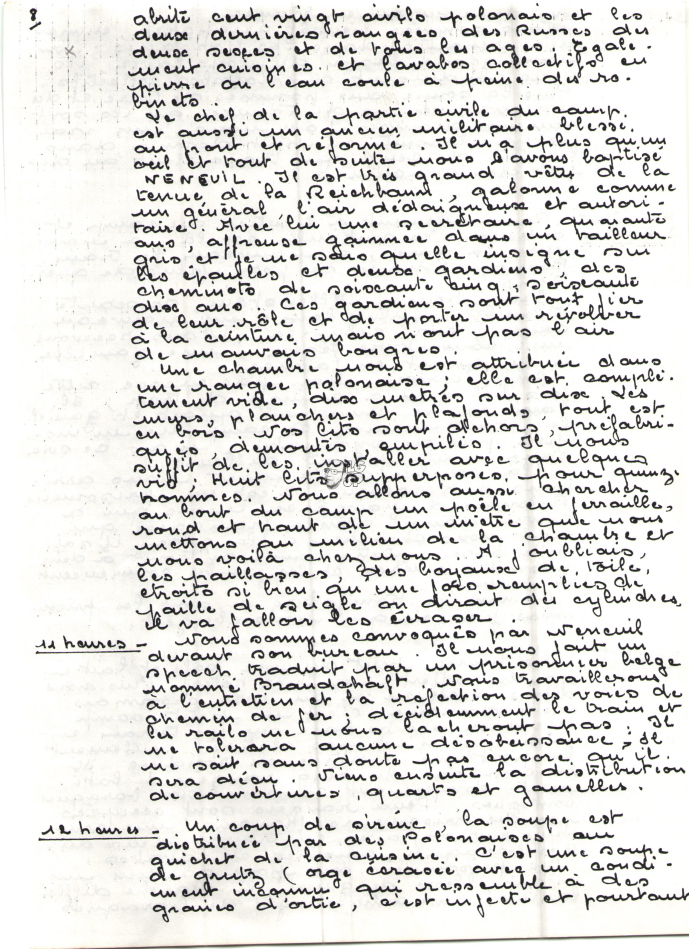 8
abrité cent vingt civils polonais et les
deux dernières rangées, des Russes des
deux sexes et de tous les ages. Egale-
ment cuisines et lavabos collectifs en
pierre ou l'eau coule à peine des ro-
binets.
Le chef de la partie civile du camp
est aussi un ancien militaire blessé
au front et réformé. Il n'a plus qu'un
oeil et tout de suite nous l'avons baptisé
NENEUIL. Il est très grand, vêtu de la
tenue de la Reichbahn, galonné comme
un général, l'air dédaigneux et autori-
taire. Avec lui une secrétaire, quarante
ans, affreuse gaminée dans un tailleur
gris et je ne sais quelle insigne sur
les épaules et deux gardiens, des
cheminots de soixante cinq, soixante
dix ans. Ces gardiens sont tout fier
de leur rôle et de porter un révolver
à la ceinture mais n'ont pas l'air
de mauvais bougres.
Une chambre nous est attribuée dans
une rangée polonaise ; elle est complè-
tement vide, dix mètres sur dix. Les
murs, planchers et plafonds, tout est
en bois. Nos lits sont dehors, préfabri-
qués, démontés, empilés. Il nous
suffit de les installer avec quelques
vis ; Huit lits supperposés, pour quinze
hommes. Nous allons aussi chercher
au bout du camp un poële en ferraille,
rond et haut de un mètre que nous
mettons au milieu de la chambre et
nous voilà chez nous. A j'oubliais,
les paillasses, des boyaux de toile,
étroits si bien qu'une fois remplies de
paille de seigle on dirait des cylindres.
Il va falloir les écraser.
11 heures - Nous sommes convoqués par Neneuil
devant son bureau. Il nous fait un
speech traduit par un prisonnier belge
nommé Brandchaft. Nous travaillerons
à l'entretien et la réfection des voies de
chemin de fer ; décidemment le train et
les rails ne nous lacheront pas ; Il
ne tolérera aucune désobéissance, Il
ne sait sans doute pas encore qu'il
sera déçu. Viens ensuite la distribution
de couvertures, quarts et gamelles.
12 heures - Un coup de sirène, la soupe est
distribuée par des Polonaises au
guichet de la cuisine. C'est une soupe
de grutz (orge écrasée avec un condi-
ment inconnu qui ressemble à des
graines d'ortie, c'est infecte et pourtant